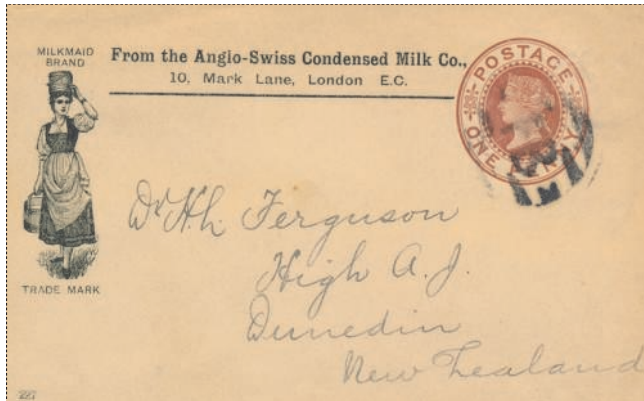 MILKMAID
BRAND
From the Anglo-Swiss Condensed Milk Co.,
10, Mark Lane, London E.C.
POSTAGE
ONE PENNY
Dr H. L. Ferguson
High
Dunedin
New Zealand
TRADE MARK